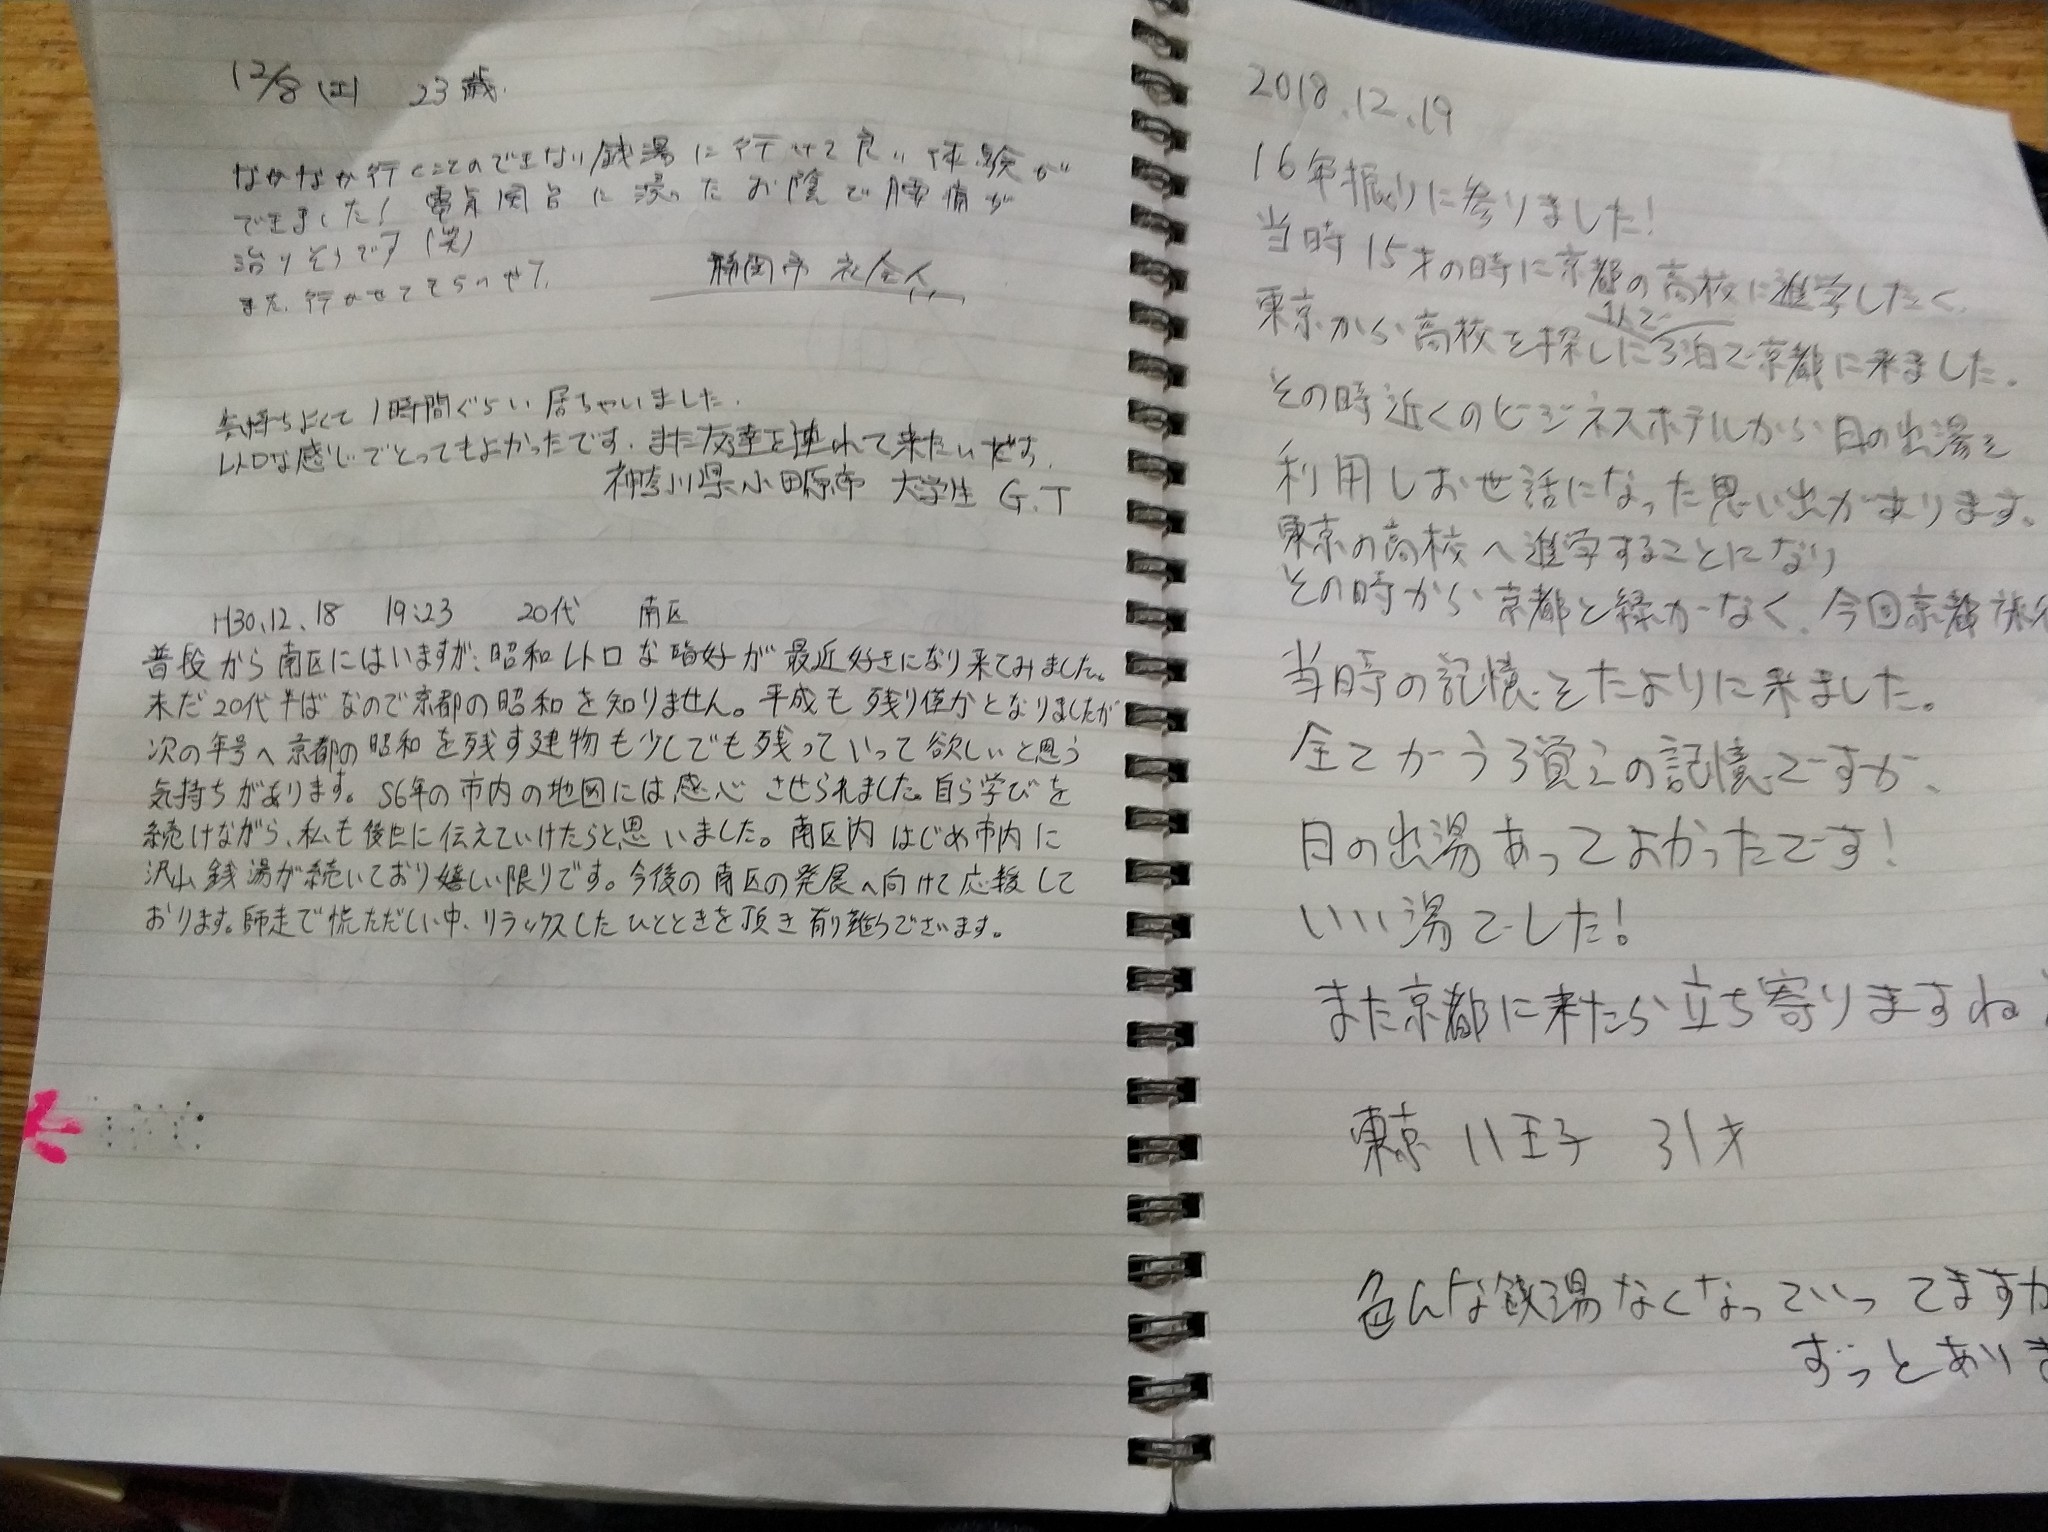 12/8(土) 23歳.
なかなか行くことのできない銭湯に行けて良い体験が
できました! 電気風呂に浸ったお陰で腰痛が
治りそうです(笑)
また、行かせてもらいます。
静岡市 社会人
気持ちよくて1時間ぐらい居ちゃいました.
レトロな感じでとってもよかったです.また友達を連れて来たいです.
神奈川県小田原市 大学生 G.T
H30.12.18 19:23 20代 南区
普段から南区にはいますが、昭和レトロな嗜好が最近好きになり来てみました。
未だ20代半ばなので京都の昭和を知りません。平成も残り僅かとなりましたが
次の年号へ京都の昭和を残す建物も少しでも残っていって欲しいと思う
気持ちがあります。S6年の市内の地図には感心させられました。自ら学びを
続けながら、私も後世に伝えていけたらと思いました。南区内はじめ市内に
沢山銭湯が続いており嬉しい限りです。今後の南区の発展へ向けて応援して
おります。師走で慌ただしい中、リラックスしたひとときを頂き有り難うございます。
2018.12.19
16年振りに参りました!
当時15才の時に京都の高校に進学したく、
東京から高校を探しに1人で3泊で京都に来ました。
その時近くのビジネスホテルから日の出湯を
利用しお世話になった思い出があります。
東京の高校へ進学することになり
その時から京都と縁がなく、今回京都旅
当時の記憶をたよりに来ました。
全てがうろ覚えの記憶ですが、
日の出湯あってよかったです!
いい湯でした!
また京都に来たら立ち寄りますね
東京 八王子 31才
色んな銭湯なくなっていってますが
ずっとありま